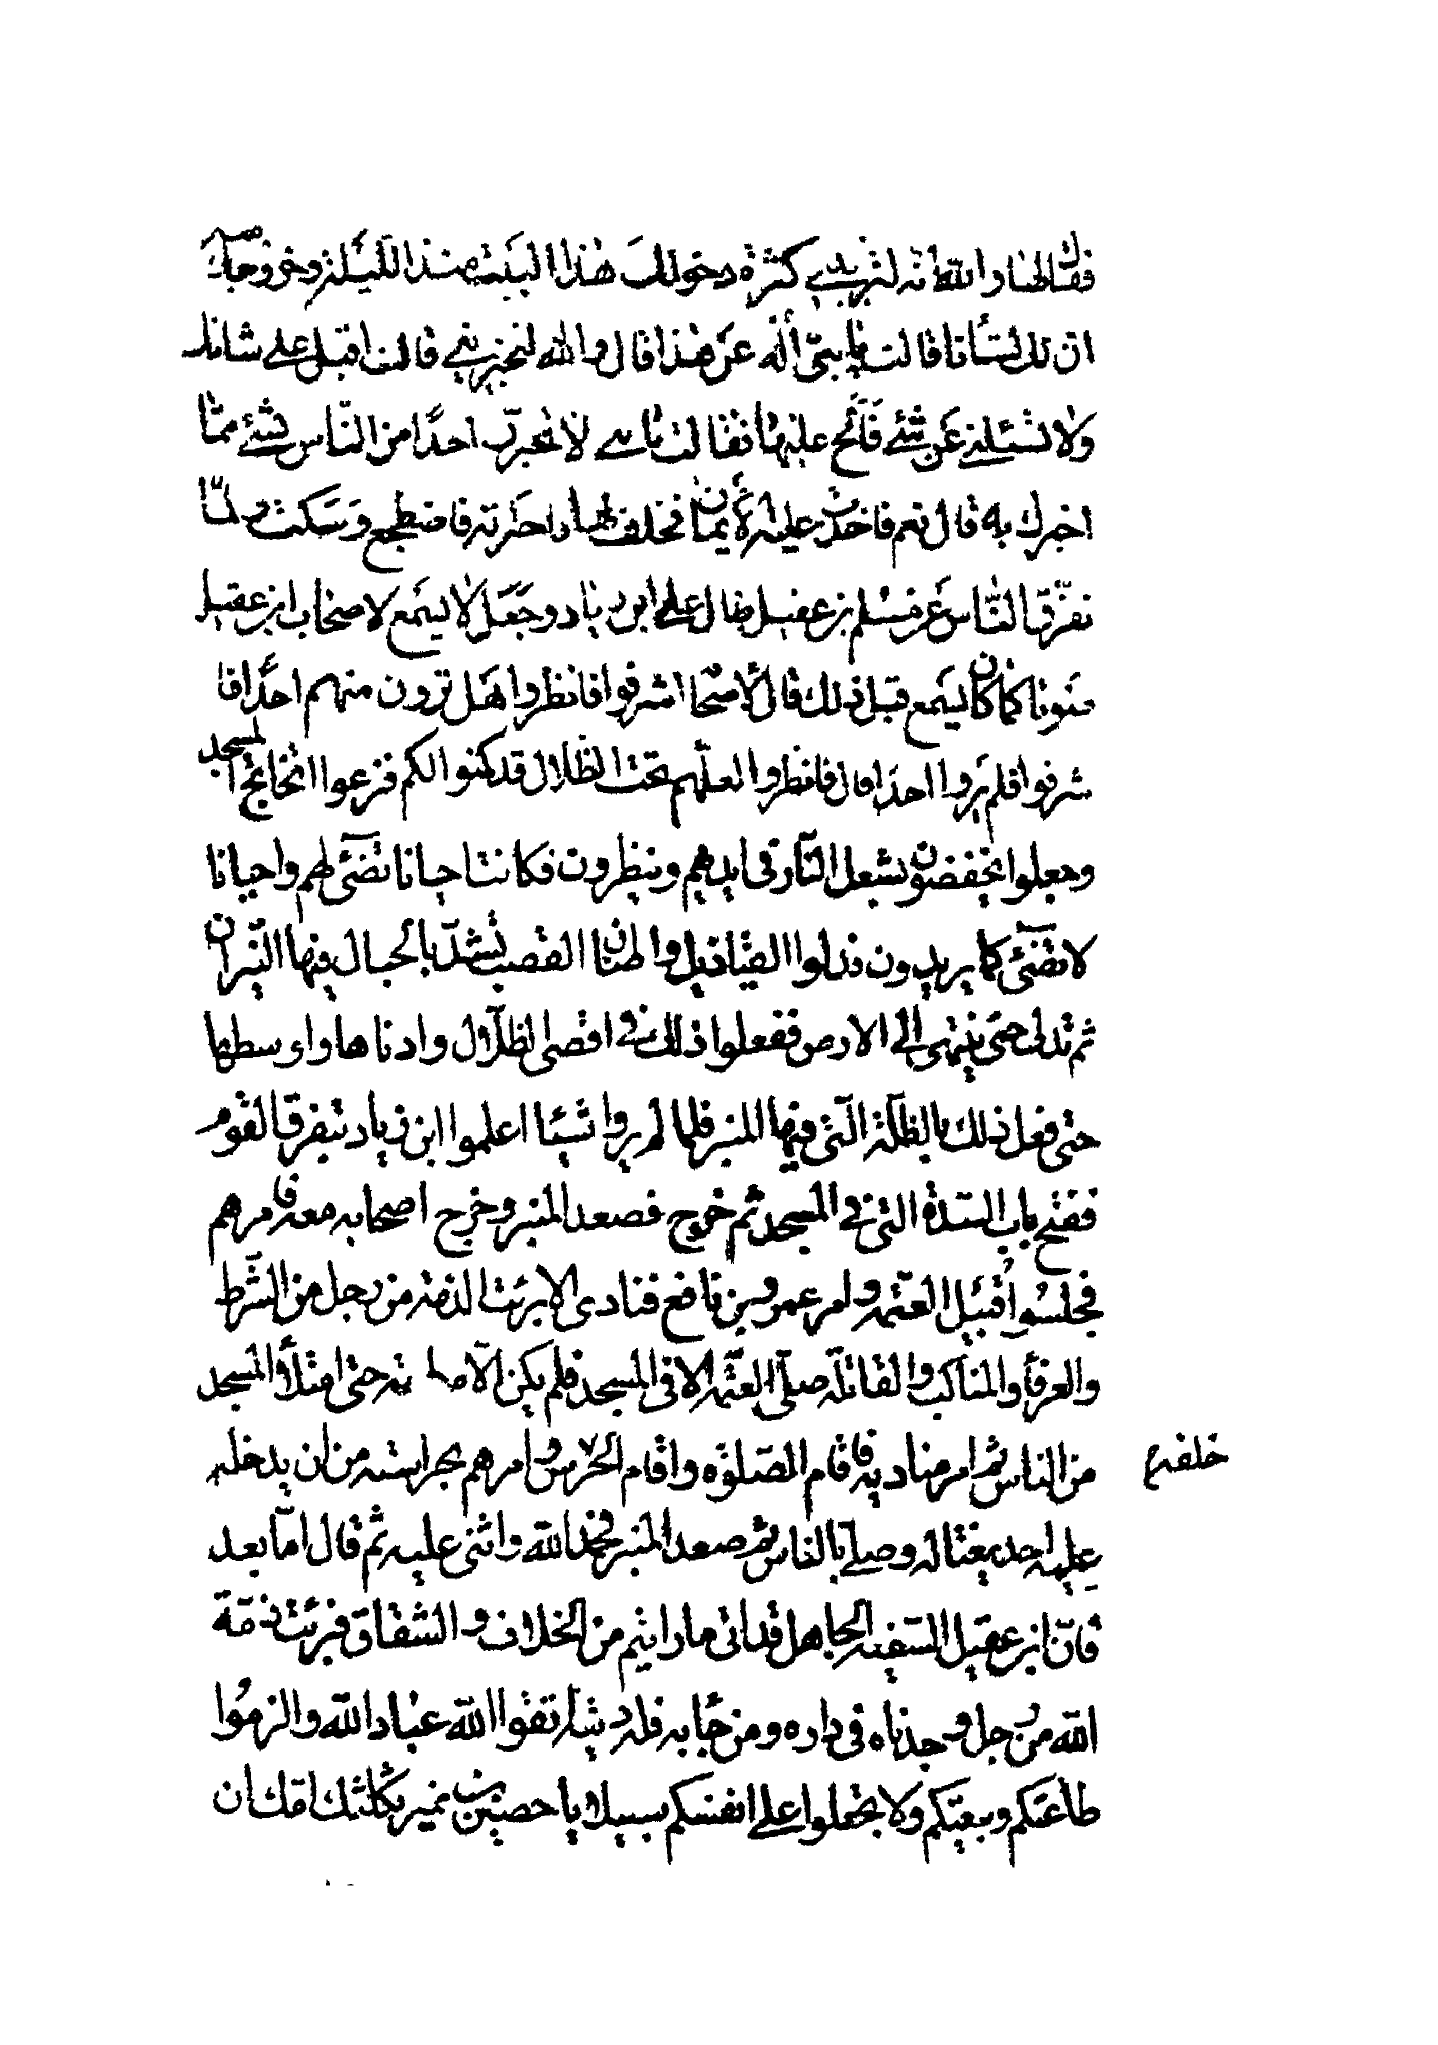 فقال لها والله انه لتريبني كثرة دخولك هذا البيت منذ الليلة وخروجك
ان لك لشانا قالت يا بني اله عن هذا قال والله لتخبريني قالت اقبل على شانك
ولا تسئلني عن شئ فالح عليها فقالت يا بني لا تخبرن احدا من الناس بشئ مما
اخبرك به قال نعم فاخذت عليه الايمان فحلف لها فاخبرته فاضطجع وسكت ولما
تفرق الناس عن مسلم بن عقيل طال على ابن زياد وجعل لا يسمع لاصحاب ابن عقيل
صوتا كما كان يسمع قبل ذلك قال لاصحابه اشرفوا فانظروا هل ترون منهم احدا فا
شرفوا فلم يروا احدا قال فانظروا لعلهم تحت الظلال قد كمنوا لكم فنزعوا تخاتج المسجد
وجعلوا يخفضون بشعل النار في ايديهم وينظرون فكانت احيانا تضئ لهم واحيانا
لا تضئ كما يريدون فدلوا القناديل واطنان القصب تشد بالحبال فيها النيران
ثم تدلى حتى ينتهى الى الارض ففعلوا ذلك في اقصى الظلال وادناها واوسطها
حتى فعل ذلك بالظلة التي فيها المنبر فلما لم يروا شيئا اعلموا ابن زياد بتفرق القوم
ففتح باب السدة التي في المسجد ثم خرج فصعد المنبر وخرج اصحابه معه فامرهم
فجلسوا قبيل العتمه وامر عمرو بن نافع فنادى الا برئت الذمة من رجل من الشرط
والعرفاء والمناكب والقاتلة صلى العتمه الا في المسجد فلم يكن الا ساعة حتى امتلأ المسجد
من الناس ثم امر مناديه فاقام الصلوة واقام الحرس وامرهم بحراسته من ان يدخل
خلفه
عليه احد يغتاله وصلى بالناس ثم صعد المنبر فحمد الله واثنى عليه ثم قال اما بعد
فان ابن عقيل السفيه الجاهل قد اتى ما رايتم من الخلاف والشقاق فبرئت ذمة
الله من رجل وجدناه في داره ومن جاء به فله ديته اتقوا الله عباد الله والزموا
طاعتكم وبيعتكم ولا تجعلوا على انفسكم سبيلا يا حصين بن نمير ثكلتك امك ان